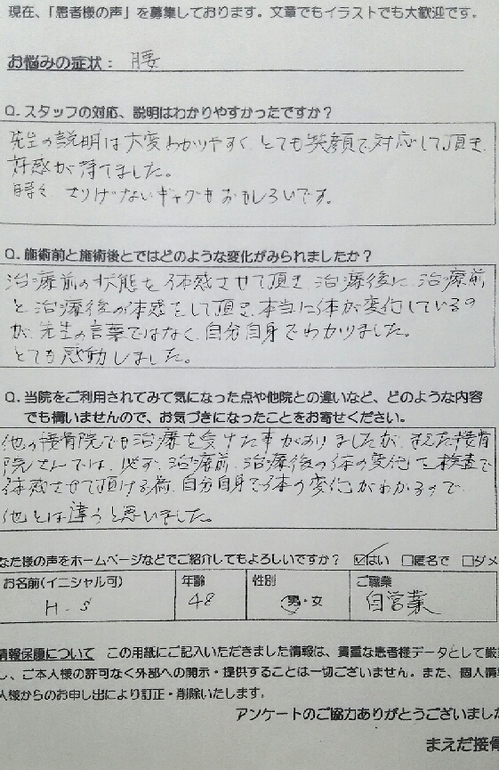 現在、「患者様の声」を募集しております。文章でもイラストでも大歓迎です。
お悩みの症状: 腰
Q. スタッフの対応、説明はわかりやすかったですか?
先生の説明は大変わかりやすく、とても笑顔で対応して頂き、
好感が持てました。
時々、さりげないギャグもおもしろいです。
Q. 施術前と施術後とではどのような変化がみられましたか?
治療前の状態を体感させて頂き、治療後に、治療前
と治療後の体感をして頂き、本当に体が変化しているの
が、先生の言葉ではなく、自分自身でわかりました。
とても感動しました。
Q. 当院をご利用されてみて気になった点や他院との違いなど、どのような内容
でも構いませんので、お気づきになったことをお寄せください。
他の接骨院でも治療を受けた事がありましたが、まえだ接骨
院さんでは、必ず、治療前、治療後の体の変化を検査で
体感させて頂ける為、自分自身で体の変化がわかるので
他とは違うと思いました。
なた様の声をホームページなどでご紹介してもよろしいですか? ☑はい □匿名で □ダメ
お名前(イニシャル可) 年齢 性別 ご職業
H.S 48 男・女 自営業
情報保護について この用紙にご記入いただきました情報は、貴重な患者様データとして厳
し、ご本人様の許可なく外部への開示・提供することは一切ございません。また、個人情
人様からのお申し出により訂正・削除いたします。
アンケートのご協力ありがとうございまし
まえだ接骨